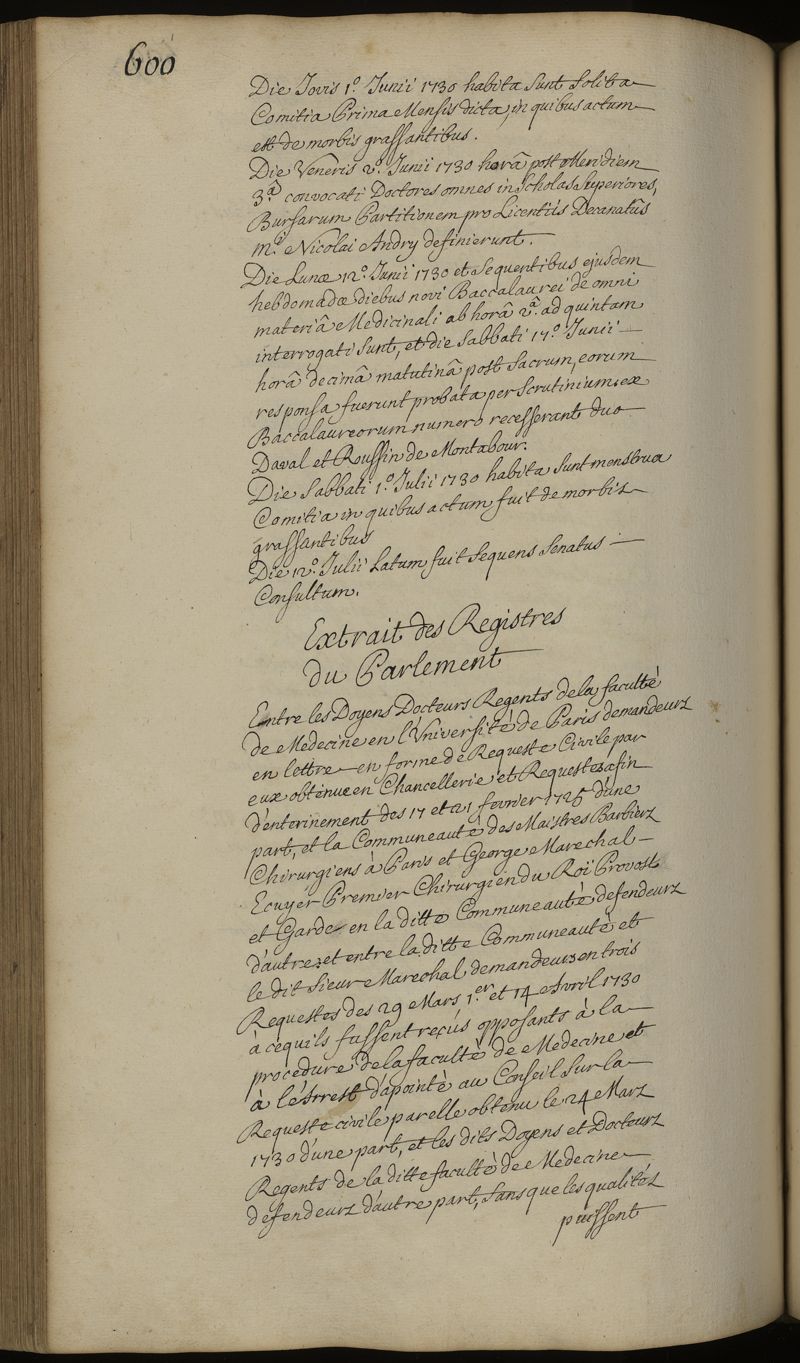 600
Die Jovis 1.º Junii 1730 habita sunt solita
Comitia Prima Mensis dicta, in quibus actum
est de morbis grassantibus.
Die Veneris 2.º Junii 1730 horâ post Meridiem
3.ª convocati Doctores omnes in Scholas Superiores,
Bursarum Partitionem pro Licentiis Decanatûs
m.ri Nicolai Andry definierunt.
Die Lunæ 12.º Junii 1730 et sequentibus ejusdem
hebdomadæ diebus novi Baccalaurei de omni
materiâ Medicinali ab horâ 2.ª ad quintam
interrogati sunt, et die Sabbati 17.º Junii
horâ decimâ matutinâ post Sacrum, eorum
responsa fuerunt probata per Scrutinium; ex
Baccalaureorum numero recesserant duo
Daval et Roussin de Montabour.
Die Sabbati 1.º Julii 1730 habita sunt menstrua
Comitia in quibus actum fuit de morbis
grassantibus
Die 12.º Julii Latum fuit sequens Senatus
Consultum.
Extrait des Registres
du Parlement
Entre les Doyens Docteurs Regents de la faculté
de Medecine en l'Université de Paris demandeurs
en lettre en forme de Requeste Civile par
eux obtenue en Chancellerie et Requestes afin
d'enterinement des 17 et 21 fevrier 1725 d'une
part, et la Communeauté des Maistres Barbiers
Chirurgiens à Paris et George Marechal
Ecuyer Premier Chirurgien du Roi Provost
et Garde en la ditte Communeauté defendeurs
d'autre; et entre la ditte Communeauté et
le dit Sieur Marechal demandeurs en trois
Requestes des 29 Mars 1.er et 14 Avril 1730
à cequ'ils fussent reçus opposants à la
procedure de la faculté de Medecine et
à l'Arrest d'apointé au Conseil sur la
Requeste civile par elle obtenu le 24 Mars
1730 d'une part, et les dits Doyens et Docteurs
Regents de la ditte faculté de Medecine
defendeurs d'autre part, sans que les qualités
puissent